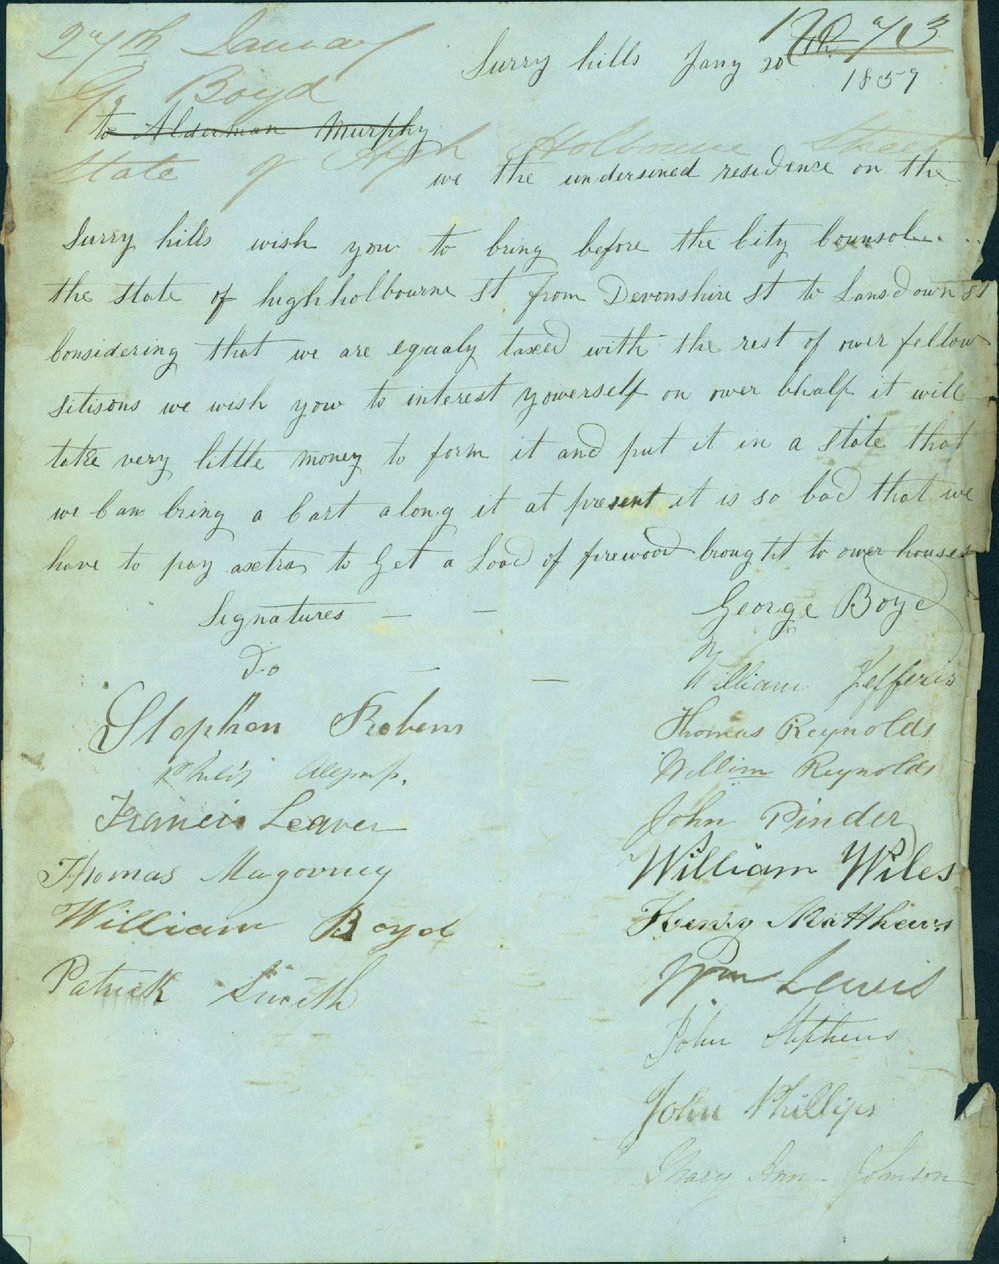 27th January
Surry hills Jany 20
1857
G. Boyd
to Alderman Murphy
State of High Holbourne Street
we the undersined residence on the
Surry hills wish yow to bring before the City Counsole
the state of highholbourne St from Devonshire St to Lansdown St
Considering that we are equaly taxed with the rest of ower fellow
sitisons we wish yow to interest yowerself on ower bhalf it will
take very little money to form it and put it in a state that
we Can bring a Cart along it at present it is so bad that we
have to pay axtra to Get a Load of firewood brought to ower houses
Signatures — — George Boyd
Do — — William Jefferis
Stephen Robens Thomas Reynolds
William Reynolds
Francis Leaver John Pinder
Thomas Magovney William Wiles
William Boyd Henry Matthews
Patrick Smith Wm Lewis
John Stephens
John Phillips
Mary Ann Johnson